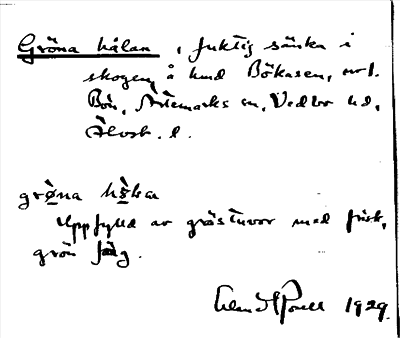 Gröna hålan, fuktig sänka i
skogen å hmd Bökasen, nv1.
Bön, Ärtemarks sn, Vedbo hd,
Älvsb. l.
grö̀na hö̀lar
Uppfylld av grästuvor med frisk,
grön färg.
1929.